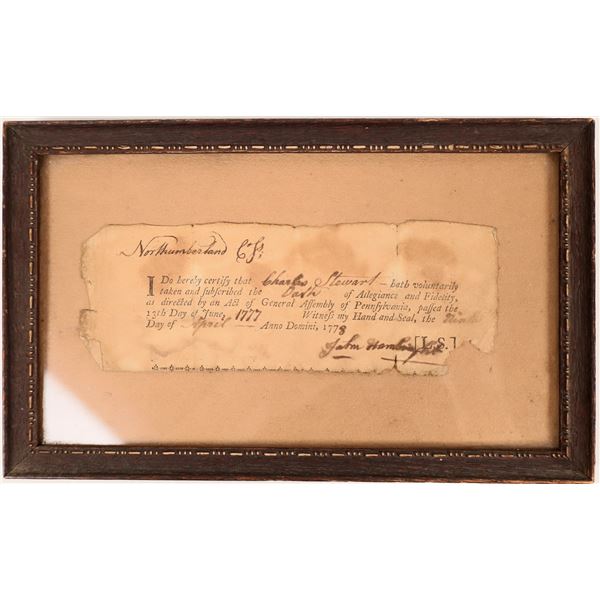 Northumberland Co. ſs;
I Do hereby certify that Charles Stewart - hath voluntarily
taken and ſubſcribed the Oath of Allegiance and Fidelity,
as directed by an Act of General Aſſembly of Pennſylvania, paſſed the
13th Day of June, 1777 Witneſs my Hand and Seal, the
Day of April — Anno Domini, 1778
John [L.S.]